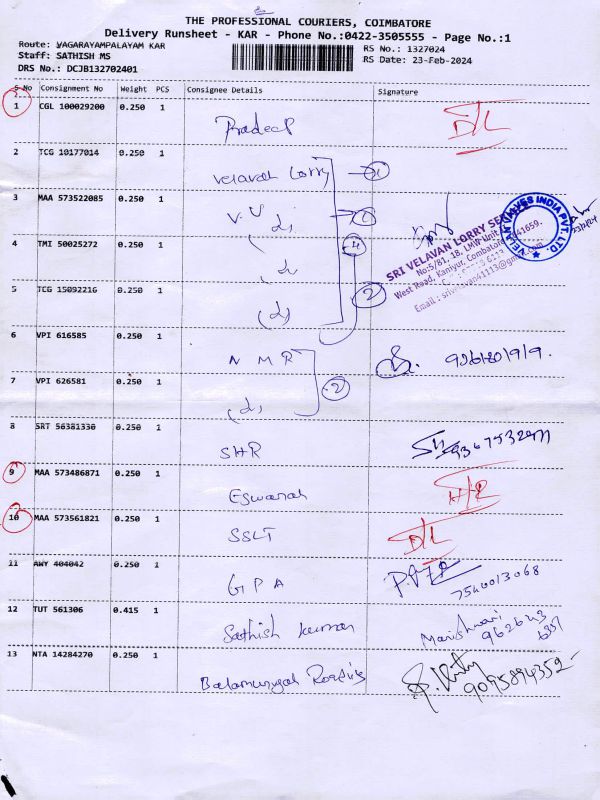 THE PROFESSIONAL COURIERS, COIMBATORE
Delivery Runsheet - KAR - Phone No.:0422-3505555 - Page No.:1
Route: VAGARAYAMPALAYAM KAR
RS No.: 1327024
Staff: SATHISH MS
RS Date: 23-Feb-2024
DRS No.: DCJB132702401
S No Consignment No Weight PCS Consignee Details Signature
1 CGL 100029200 0.250 1
Pradeep D/L
2 TCG 10177014 0.250 1
Velavan Lorry
3 MAA 573522085 0.250 1
V.V
4 TMI 50025272 0.250 1
5 TCG 15092216 0.250 1
SRI VELAVAN LORRY
No:5/81, 18, LMW Unit
West Road, Kaniyur, Coimbatore 641659.
Email : srivelavan41113@gmail.com
VELAN VIHAYES INDIA PVT. LTD.
6 VPI 616585 0.250 1
N M R
7 VPI 626581 0.250 1
8 SRT 56381330 0.250 1
SHR
9 MAA 573486871 0.250 1
Eswaran
10 MAA 573561821 0.250 1
SSLT D/L
11 AWY 404042 0.250 1
GPA 7540013068
12 TUT 561306 0.415 1
Sathish kumar
13 NTA 14284270 0.250 1
Balamurugan 9095894352